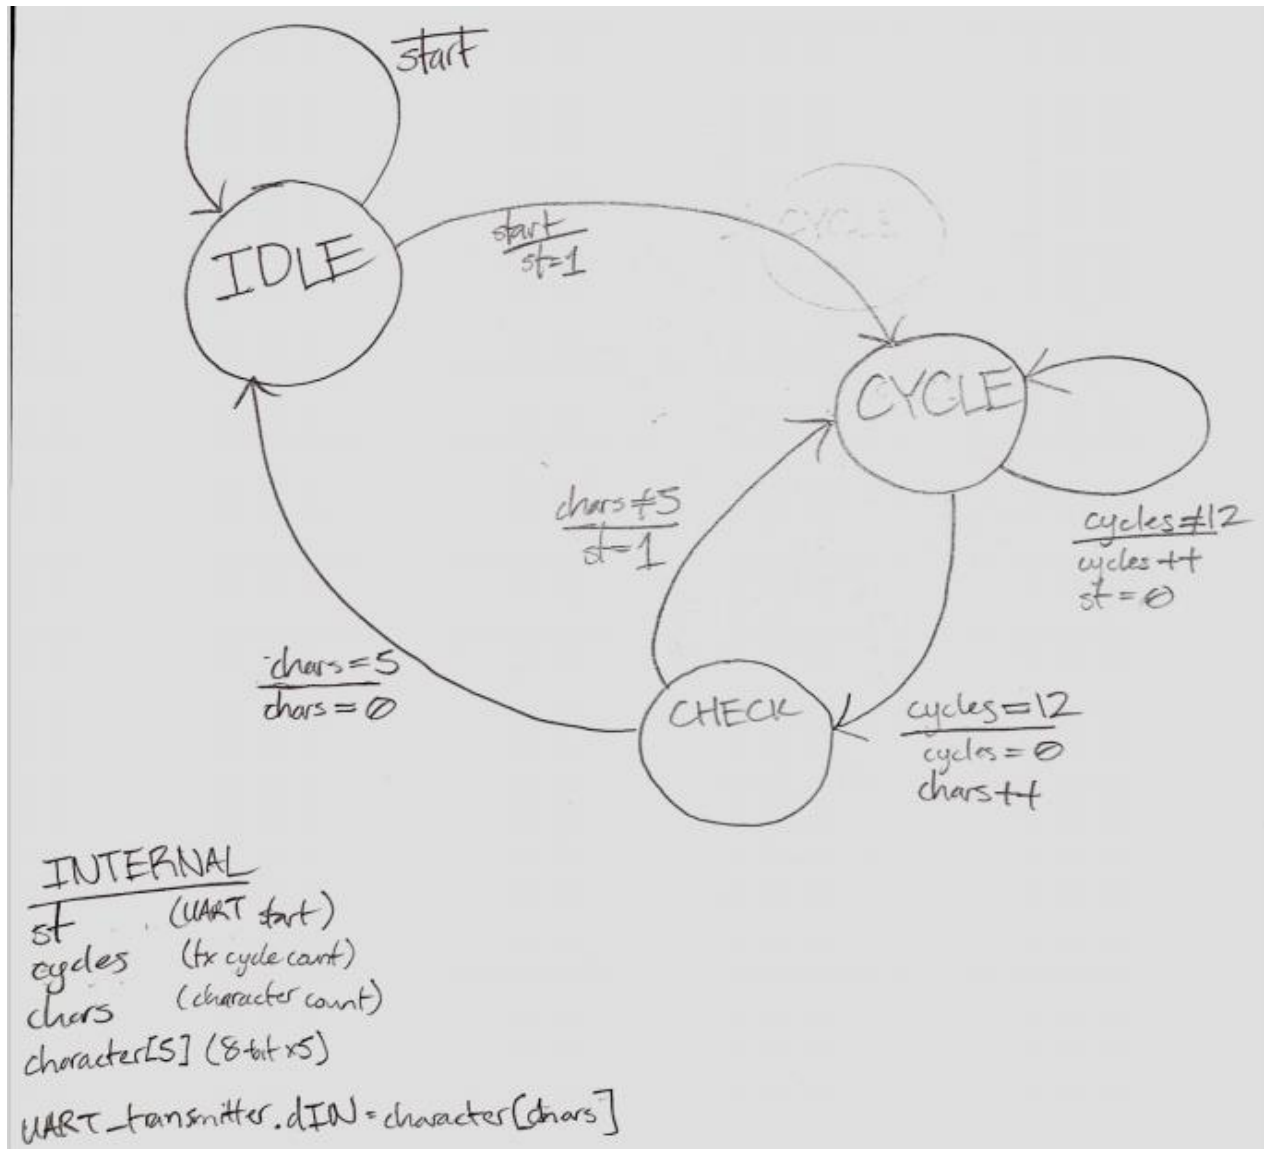 s̅t̅a̅r̅t̅
CYCLE
start
st=1
IDLE
CYCLE
chars≠5
st=1
cycles≠12
cycles++
st=0
chars=5
chars=0
CHECK
cycles=12
cycles=0
chars++
INTERNAL
st (UART start)
cycles (tx cycle count)
chars (character count)
character[5] (8-bit x5)
UART_transmitter.dIN=character[chars]